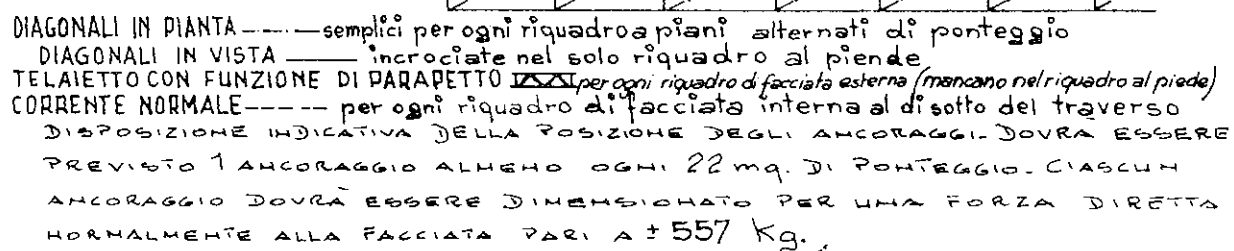 DIAGONALI IN PIANTA —·—·— semplici per ogni riquadro a piani alternati di ponteggio
DIAGONALI IN VISTA ——— incrociate nel solo riquadro al piende
TELAIETTO CON FUNZIONE DI PARAPETTO per ogni riquadro di facciata esterna (mancano nel riquadro al piede)
CORRENTE NORMALE ----- per ogni riquadro di facciata interna al disotto del traverso
DISPOSIZIONE INDICATIVA DELLA POSIZIONE DEGLI ANCORAGGI. DOVRA ESSERE
PREVISTO 1 ANCORAGGIO ALMENO OGNI 22 mq. DI PONTEGGIO. CIASCUN
ANCORAGGIO DOVRÀ ESSERE DIMENSIONATO PER UNA FORZA DIRETTA
NORMALMENTE ALLA FACCIATA PARI A ± 557 Kg.